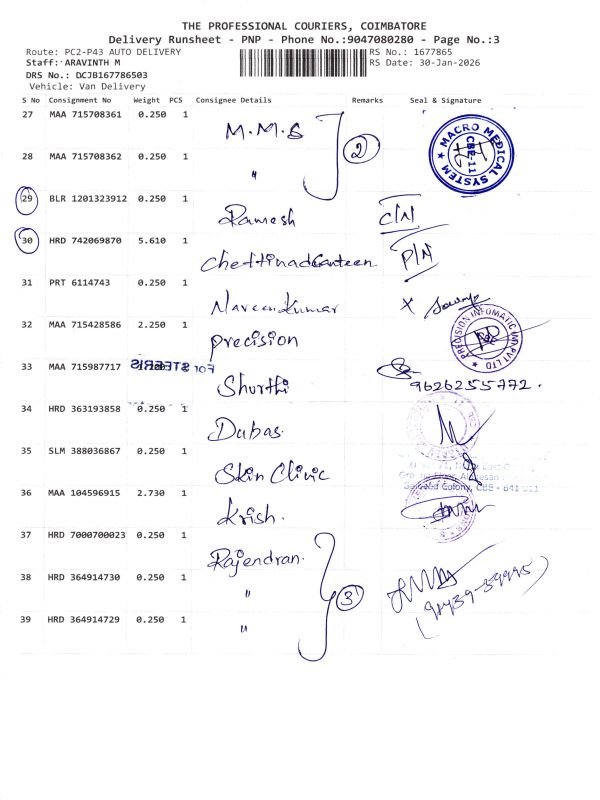 THE PROFESSIONAL COURIERS, COIMBATORE
Delivery Runsheet - PNP - Phone No.:9047080280 - Page No.:3
Route: PC2-P43 AUTO DELIVERY RS No.: 1677865
Staff: ARAVINTH M RS Date: 30-Jan-2026
DRS No.: DCJB167786503
Vehicle: Van Delivery
S No Consignment No Weight PCS Consignee Details Remarks Seal & Signature
27 MAA 715708361 0.250 1 M.M.S 2 MACRO MEDICAL SYSTEM CBE-11
28 MAA 715708362 0.250 1 "
29 BLR 1201323912 0.250 1 Ramesh C/N
30 HRD 742069870 5.610 1 Chettinad Canteen P/N
31 PRT 6114743 0.250 1 Naveen Kumar X
32 MAA 715428586 2.250 1 Precision PRECISION INFOMATIC (M) PVT LTD
33 MAA 715987717 1 For STERIS Shurthi 9626255772.
34 HRD 363193858 0.250 1 Dabas.
35 SLM 388036867 0.250 1 Skin Clinic
Colony, CBE - 641 011
36 MAA 104596915 2.730 1 Krish.
37 HRD 7000700023 0.250 1 Rajendran.
38 HRD 364914730 0.250 1 " 3 98439-39995
39 HRD 364914729 0.250 1 "